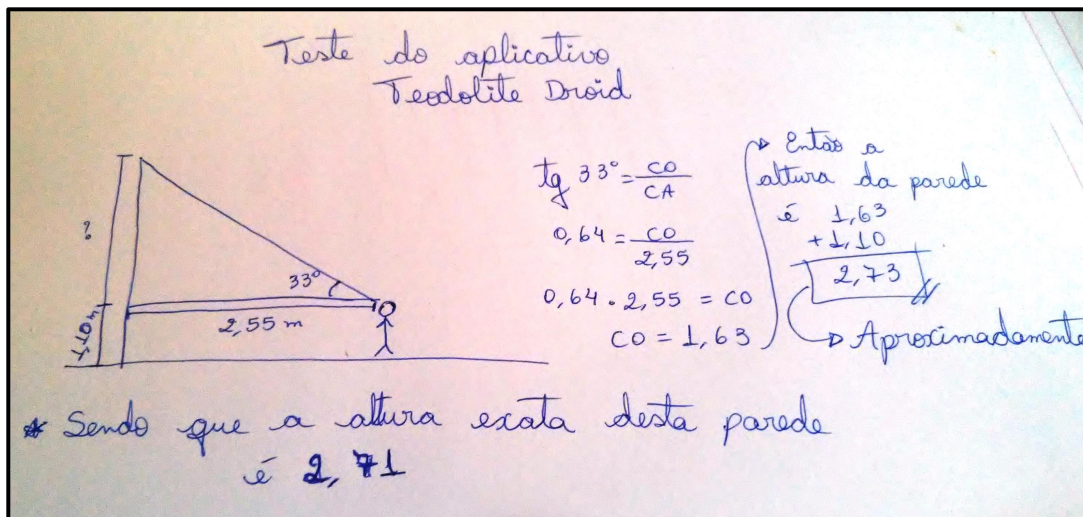 Teste do aplicativo
Teodolite Droid
?
1,10 m
33°
2,55 m
tg 33° = CO / CA
0,64 = CO / 2,55
0,64 . 2,55 = CO
CO = 1,63
Então a
altura da parede
é 1,63
+ 1,10
2,73
Aproximadamente
* Sendo que a altura exata desta parede
é 2,71